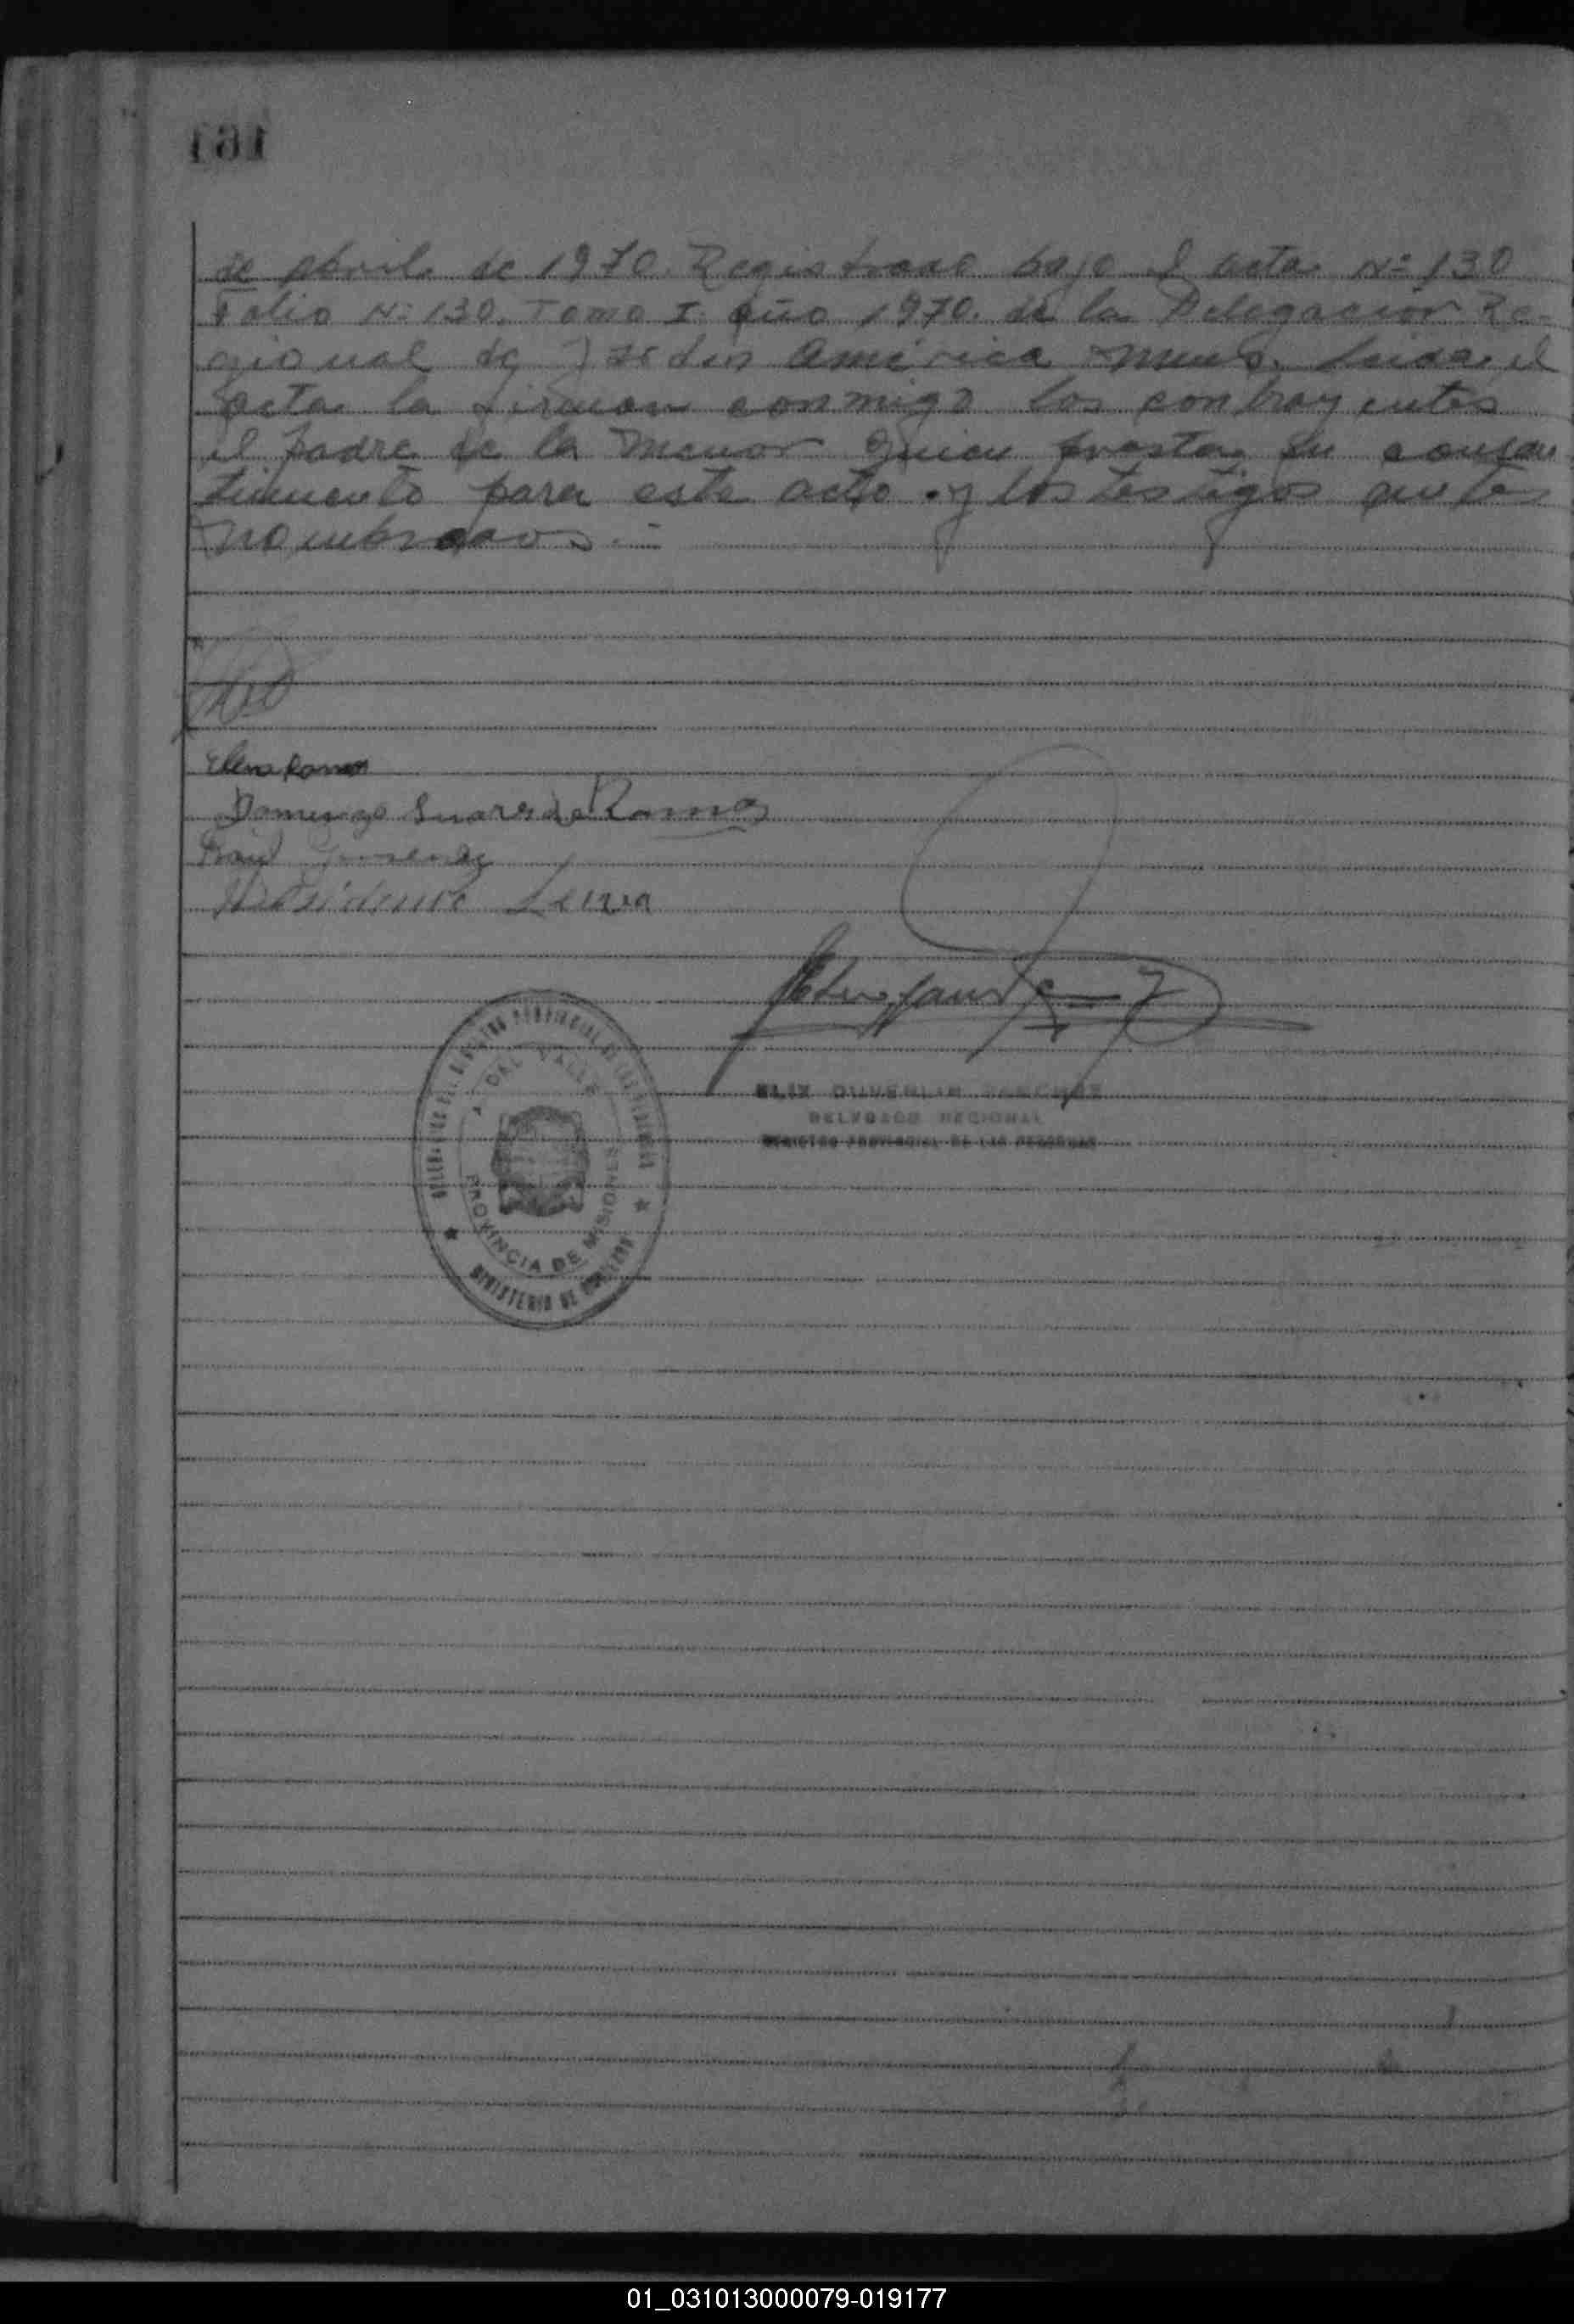 161
de Abril de 1970. Registrado bajo el acta Nº 130
Folio Nº 130. Tomo I. año 1970. de la Delegación Re-
gional de Jardín América Mnes. Leida el
acta la firman conmigo los contrayentes
el padre de la menor quien presta su consen
timiento para este acto y los testigos antes
nombrados.-
Elena Ramos
Domingo Suares de Ramos
DELEGACION DEL REGISTRO PROVINCIAL DE LAS PERSONAS
DEL VALLE
PROVINCIA DE MISIONES
MINISTERIO DE GOBIERNO
SANCHEZ
DELEGADO REGIONAL
REGISTRO PROVINCIAL DE LAS PERSONAS
01_031013000079-019177